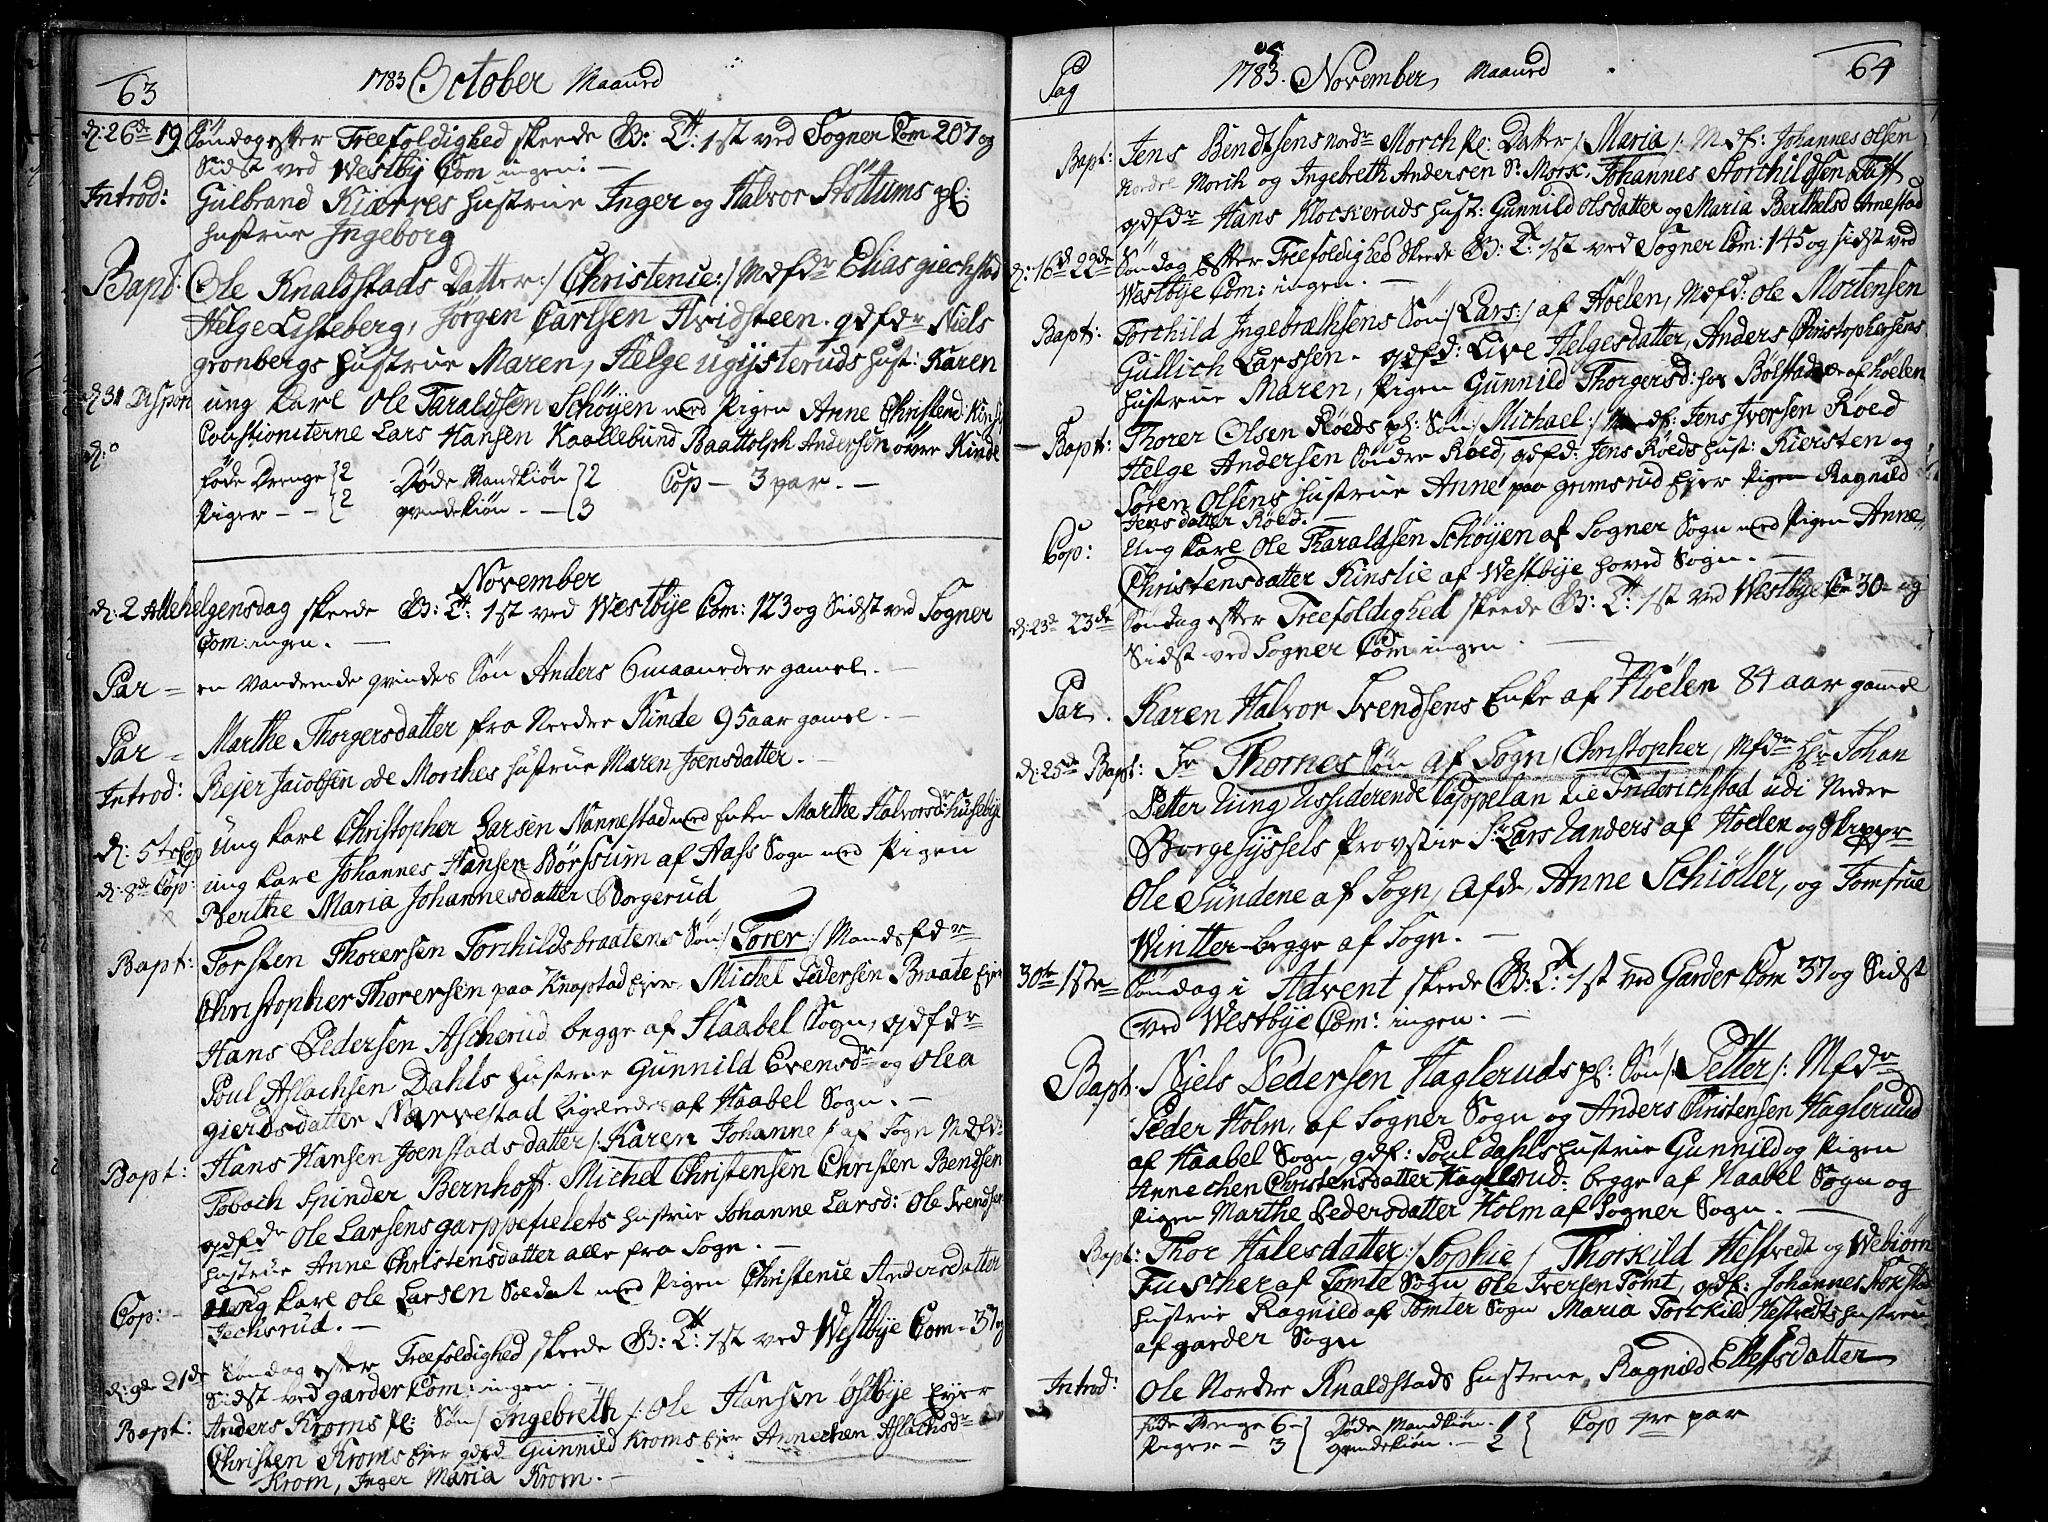 63
1783 October Maaned
d: 26de 19 Søndag efter Treefoldighed skeede G: T: 1st ved Sogner Com 207 og
Sidst ved Westby Com ingen: —
Introd: Gulbrand Kiærres hustrue Inger og Halvor Støttums pl:
hustrue Ingeborg
Bapt: Ole Knaldstads Datter :/ Christence :/ Mdfdr Elias giechstad
Helge Listeberg, Jørgen Carlsen Hvidsteen. qdfdr Niels
gronbergs hustrue Maren, Helge ugysteruds hust: Karen
d 31 Dispon ung karl Ole Taraldsen Schøyen med Pigen Anne Christend: Kinsl
d:o Coustioniterne Lars Hansen Kaallebund Baattolph Andersen øvre Kinde
føde Drenge } 2 Døde Mandkiøn } 2 Cop — 3 par. —
Piger — — } 2 qvindekiøn. — } 3
November
d: 2 Allehelgensdag skeede G: T: 1st ved Westbye Com: 123 og Sidst ved Sogner
Com: ingen. —
Par = en vandrende qvindes Søn Anders 6 maaneder gamel. —
Par = Marthe Thorgersdatter fra Nerdre Kinde 95 aar gamel. —
Introd: Rejer Jacobsen ode Morches hustrue Maren Joensdatter. —
d: 5te Cop ung karl Christopher Larsen Nannestad med Enken Marthe Halvorsdr: Husebye
d: 8de Cop: ung karl Johannes Hansen Børsum af Aass Sogn med Pigen
Berthe Maria Johannesdatter Borgerud
Bapt: Torsten Thorersen Torchildsbraatens Søn :/ Torer :/ Mandsfdr
Christopher Thorersen paa Knapstad Ejer, Michel Pedersen Braate Ejer
Hans Pedersen Ascherud begge af Haabel Sogn, qdfdr
Poul Aslachsen Dahls hustrue Gunnild Evensdr og Olea
gierdsdatter Narvestad Ligeledes af Haabel Sogn. —
Bapt: Hans Hansen Joenstads datter /: Karen Johanne /: af Sogn Mdfdr
Tobach Spinder Bernhoff. Michel Christensen Christen Bendsen
qdfdr Ole Larsens garppefielets hustrue Johanne Larsd: Ole Svendsen
hustrue Anne Christensdatter alle fra Sogn. —
Cop: — Ung karl Ole Larsen Soldat med Pigen Christence Andersdatter
Jechsrud. —
d: 9de 21de Søndag efter Treefoldighed skeede G: T: 1st ved Westbye Com = 37 og
Sidst ved garder Com: ingen. —
Bapt: Anders Kroms pl: Søn / Ingebreth /: Ole Hansen Østbye Ejer
Christen Kroms Ejer qdfd Gunnild Kroms Ejer Annechen Aslachsdr
Krom, Inger Maria Krom. —
Pag 1783. November Maaned 64
Bapt: Jens Bendtsens nordr Morch pl: Datter / Maria /: Mdf: Johannes Olsen
Nordre Morch og Ingebreth Andersen Sr. Morc: Johannes Torchildsen Taff
qdfdr Hans Klockeruds hust: Gunnild Olsdatter og Maria Berthelsd Arnestad
d: 16d 22de Søndag Efter Treefoldighed skeede G: T: 1st ved Sogner Com: 145 og sidst ved
Westbye Com: ingen. —
Bapt: Torchild Ingebræthsens Søn / Lars :/ af Hoelen, Mdfd: Ole Mortensen
Gullich Larssen. qdfd: Live Helgesdatter, Anders Christophersens
hustrue Maren, Pigen Gunnild Thorgersd: hos Bølstad af Høelen
— Bapt: Thorer Olsen Røeds pl: Søn :/ Michael :/ Mdf: Jens Iversen Røed
Helge Andersen Søndre Røed, qdfd: Jens Røeds hust: Kiersten og
Søren Olsens hustrue Anne paa grimsrud Ejer Pigen Ragnild
Jensdatter Røed. —
Cop: Ung karl Ole Tharaldsen Schøyen af Sogner Sogn med Pigen Anne
Christensdatter Kinslie af Westbye hoved Sogn. —
d: 23de 23de Søndag efter Treefoldighed skeede G: T: 1st ved Westbye Com 30 og
Sidst ved Sogner Com ingen —
Par. Karen Halvor Svendsens Enke af Høelen 84 aar gamel
d: 25de Bapt: Sr Thornes Søn af Sogn / Christopher / Mfdr Hr Johan
Petter Jung Ressiderende Cappelan til Friderichstad udi Nedre
Borgesyssels Provstie Sr Lars Landers af Hoelen og Skipper
Ole Sundene af Sogn, qfdr, Anne Schiøller, og Jomfrue
Wintter begge af Sogn. —
30te 1ste Søndag i Advent skeede G: T: 1st ved Garder Com 37 og Sidst
ved Westbye Com: ingen. —
Bapt. Niels Pedersen Hagleruds pl: Søn /: Petter /: Mfdr
Peder Holm, af Sogner Sogn og Anders Christensen Haglerud
af Haabel Sogn, qdf: Poul Dahls hustrue Gunnild og Pigen
Annechen Christensdatter Haglerud: begge af Haabel Sogn og
Pigen Marthe Pedersdatter Holm af Sogner Sogn. —
Bapt: Thor Hales datter :/ Sophie / Thorkild Hestvedt og Webiørn
Fuscher af Tomte Sogn Ole Iversen Tomt, qdf: Johannes
hustrue Ragnild af Tomter Sogn Maria Torckild Hestvedts hustrue
af garder Sogn
Introd: Ole Nordre Knaldstads hustrue, Ragnild Ellefsdatter
føde Drenge 6 — } Døde Mandkiøn. 1 } Cop 4re par
Piger — 3 } qvindekiøn. — 2 }